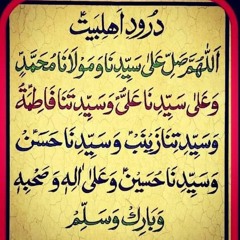 درودِ اھلبیتؑ
اَللّٰهُمَّ صَلِّ عَلٰی سَیِّدِنَا وَمَوْلَانَا مُحَمَّدٍ
وَعَلٰی سَیِّدِنَا عَلِیٍّ وَسَیِّدَتِنَا فَاطِمَةَ
وَسَیِّدَتِنَا زَیْنَبَ وَسَیِّدِنَا حَسَنْ
وَسَیِّدِنَا حُسَیْنْ وَعَلٰی اٰلِهٖ وَصَحْبِهٖ
وَبَارِكْ وَسَلِّمْ